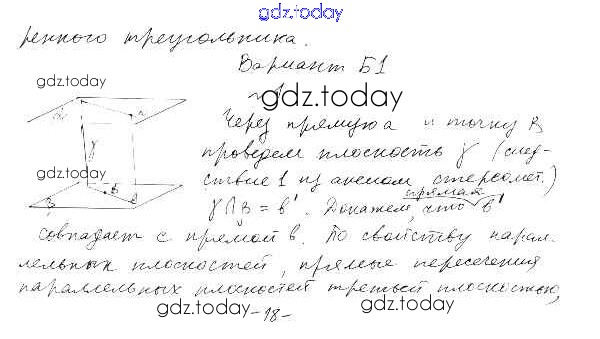 gdz.today
ренного треугольника.
Вариант Б1
gdz.today
gdz.today
Через прямую a и точку B
проведем плоскость γ (след-
gdz.today
ствие 1 из аксиом стереомет.)
прямая
γ∩β = b'. Докажем, что b'
совпадает с прямой b. По свойству парал-
лельных плоскостей, прямые пересечения
параллельных плоскостей третьей плоскостью,
gdz.today
gdz.today
-18-
α
a
γ
B
b
β